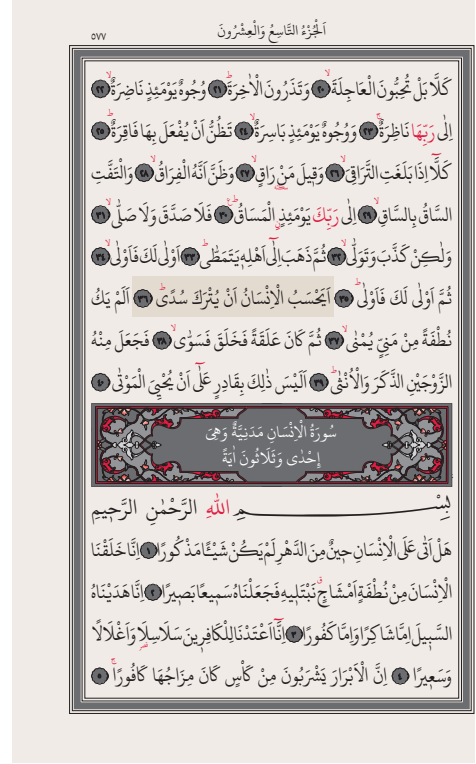 اَلْجُزْءُ التَّاسِعُ وَالْعِشْرُونَ
٥٧٧
كَلَّا بَلْ تُحِبُّونَ الْعَاجِلَةَۙ ٢٠ وَتَذَرُونَ الْاٰخِرَةَۜ ٢١ وُجُوهٌ يَوْمَئِذٍ نَاضِرَةٌۙ ٢٢
اِلٰى رَبِّهَا نَاظِرَةٌۚ ٢٣ وَوُجُوهٌ يَوْمَئِذٍ بَاسِرَةٌۙ ٢٤ تَظُنُّ اَنْ يُفْعَلَ بِهَا فَاقِرَةٌۜ ٢٥
كَلَّٓا اِذَا بَلَغَتِ التَّرَاقِيَۙ ٢٦ وَق۪يلَ مَنْ۔ رَاقٍۙ ٢٧ وَظَنَّ اَنَّهُ الْفِرَاقُۙ ٢٨ وَالْتَفَّتِ
السَّاقُ بِالسَّاقِۙ ٢٩ اِلٰى رَبِّكَ يَوْمَئِذٍۨ الْمَسَاقُۜ۟ ٣٠ فَلَا صَدَّقَ وَلَا صَلّٰىۙ ٣١
وَلٰكِنْ كَذَّبَ وَتَوَلّٰىۙ ٣٢ ثُمَّ ذَهَبَ اِلٰٓى اَهْلِه۪ يَتَمَطّٰىۜ ٣٣ اَوْلٰى لَكَ فَاَوْلٰىۙ ٣٤
ثُمَّ اَوْلٰى لَكَ فَاَوْلٰىۜ ٣٥ اَيَحْسَبُ الْاِنْسَانُ اَنْ يُتْرَكَ سُدًىۜ ٣٦ اَلَمْ يَكُ
نُطْفَةً مِنْ مَنِيٍّ يُمْنٰىۙ ٣٧ ثُمَّ كَانَ عَلَقَةً فَخَلَقَ فَسَوّٰىۙ ٣٨ فَجَعَلَ مِنْهُ
الزَّوْجَيْنِ الذَّكَرَ وَالْاُنْثٰىۜ ٣٩ اَلَيْسَ ذٰلِكَ بِقَادِرٍ عَلٰٓى اَنْ يُحْيِيَ الْمَوْتٰى ٤٠
سُورَةُ الْاِنْسَانِ مَدَنِيَّةٌ وَهِيَ
اِحْدٰى وَثَلَاثُونَ اٰيَةً
بِسْمِ اللّٰهِ الرَّحْمٰنِ الرَّح۪يمِ
هَلْ اَتٰى عَلَى الْاِنْسَانِ ح۪ينٌ مِنَ الدَّهْرِ لَمْ يَكُنْ شَيْـًٔا مَذْكُورًا ١ اِنَّا خَلَقْنَا
الْاِنْسَانَ مِنْ نُطْفَةٍ اَمْشَاجٍۗ نَبْتَل۪يهِ فَجَعَلْنَاهُ سَم۪يعًا بَص۪يرًا ٢ اِنَّا هَدَيْنَاهُ
السَّب۪يلَ اِمَّا شَاكِرًا وَاِمَّا كَفُورًا ٣ اِنَّٓا اَعْتَدْنَا لِلْكَافِر۪ينَ سَلَاسِلَا۬ وَاَغْلَالًا
وَسَع۪يرًا ٤ اِنَّ الْاَبْرَارَ يَشْرَبُونَ مِنْ كَأْسٍ كَانَ مِزَاجُهَا كَافُورًاۚ ٥